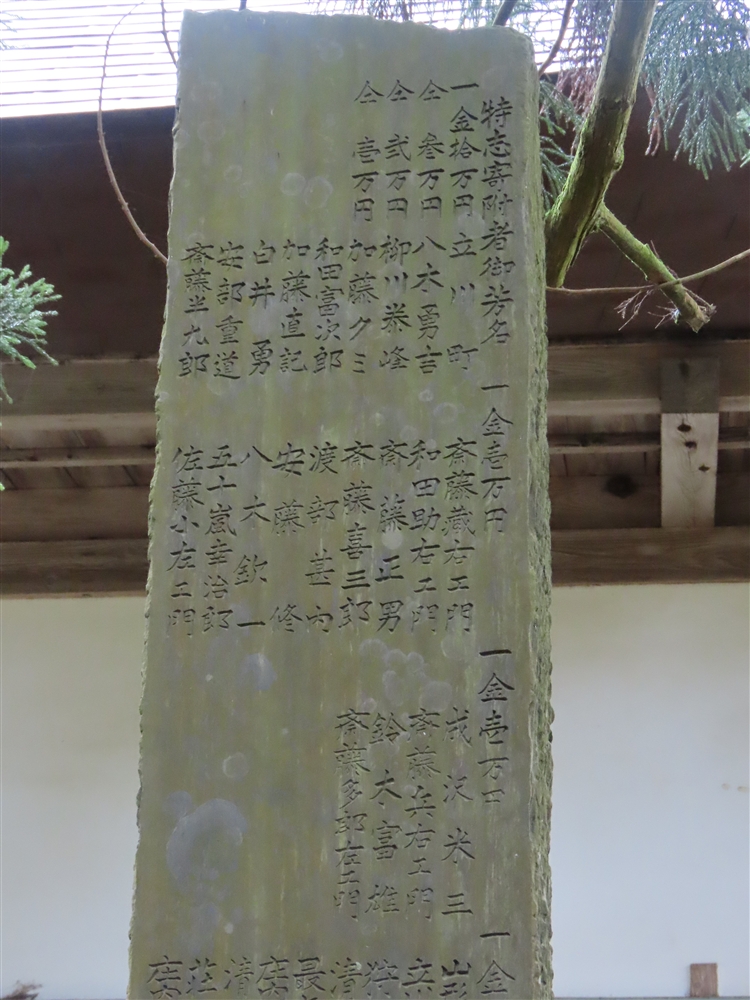 特志寄附者御芳名
一金拾万円 立川町
仝 叁万円 八木勇吉
仝 弐万円 柳川泰峰
仝 壱万円 加藤クミ
和田富次郎
加藤直記
白井勇
安部重道
斎藤半九郎
一金壱万円
斎藤蔵右エ門
和田助右エ門
斎藤正男
斎藤喜三郎
渡部甚内
安藤修
八木欽一
五十嵐幸治郎
佐藤小左エ門
一金壱万円
成沢米三
斎藤兵右エ門
鈴木富雄
斎藤多郎左エ門
一金